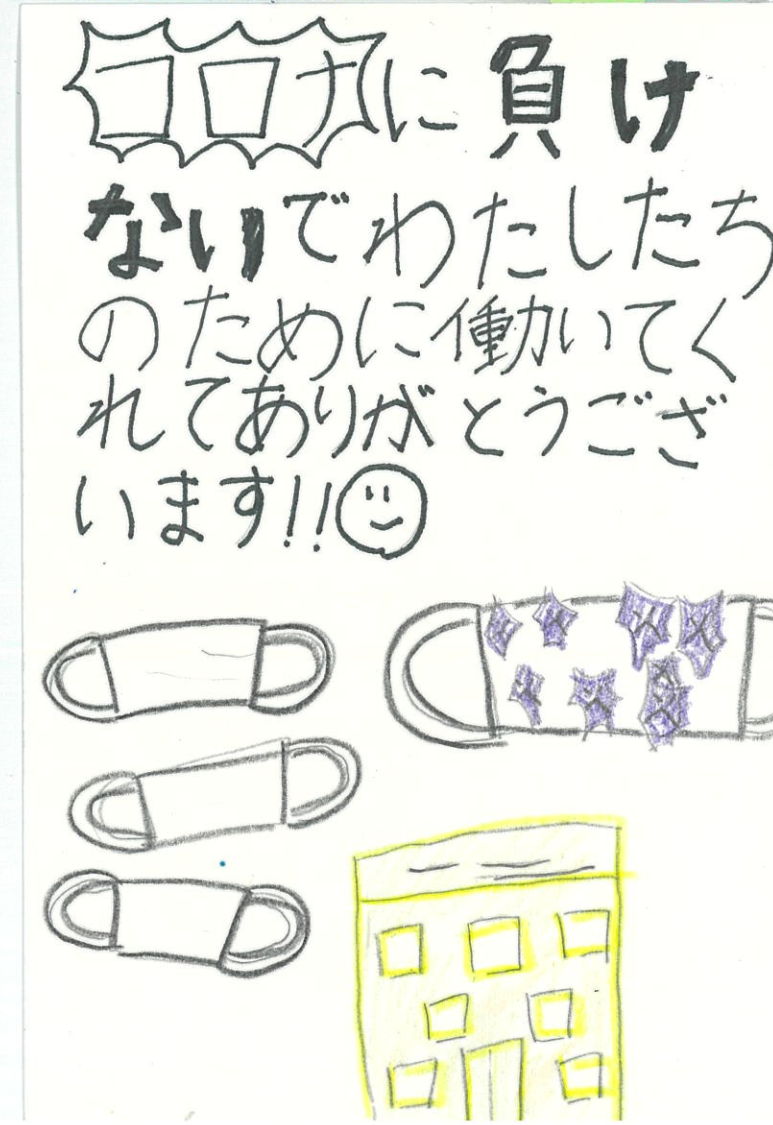 コロナに負け
ないでわたしたち
のために働いてく
れてありがとうござ
います!!